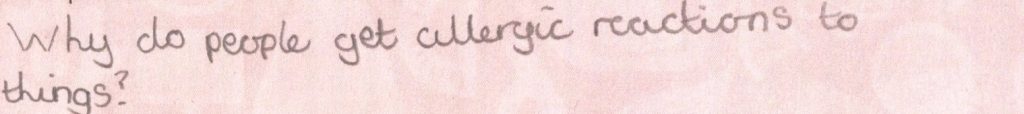 Why do people get allergic reactions to
things?